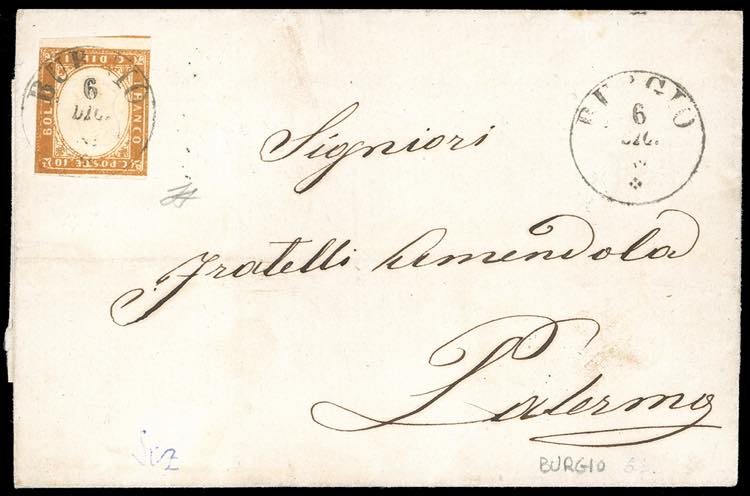 BURGIO
6
DIC.
C. DIECI
BOLLO
FRANCO
C. POSTE 10
BURGIO
6
DIC.
Signiori
Fratelli Amendola
Palermo
BURGIO